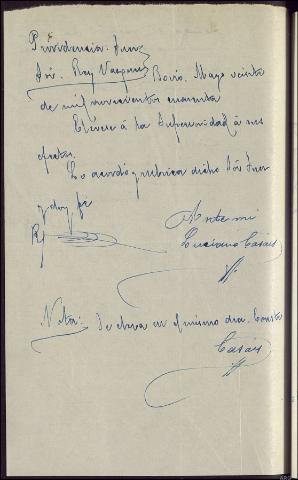 Providencia. Juez
Sór. Rey Vazquez Boiro. Mayo veinte
de mil novecientos cuarenta
Elévese á la Superioridad á sus
efectos.
Lo acordó y rubrica dicho Sór Juez
y doy fé
R/
Ante mi
Luciano Casáis
Nota: Se eleva en el mismo dia. Consta
Casáis